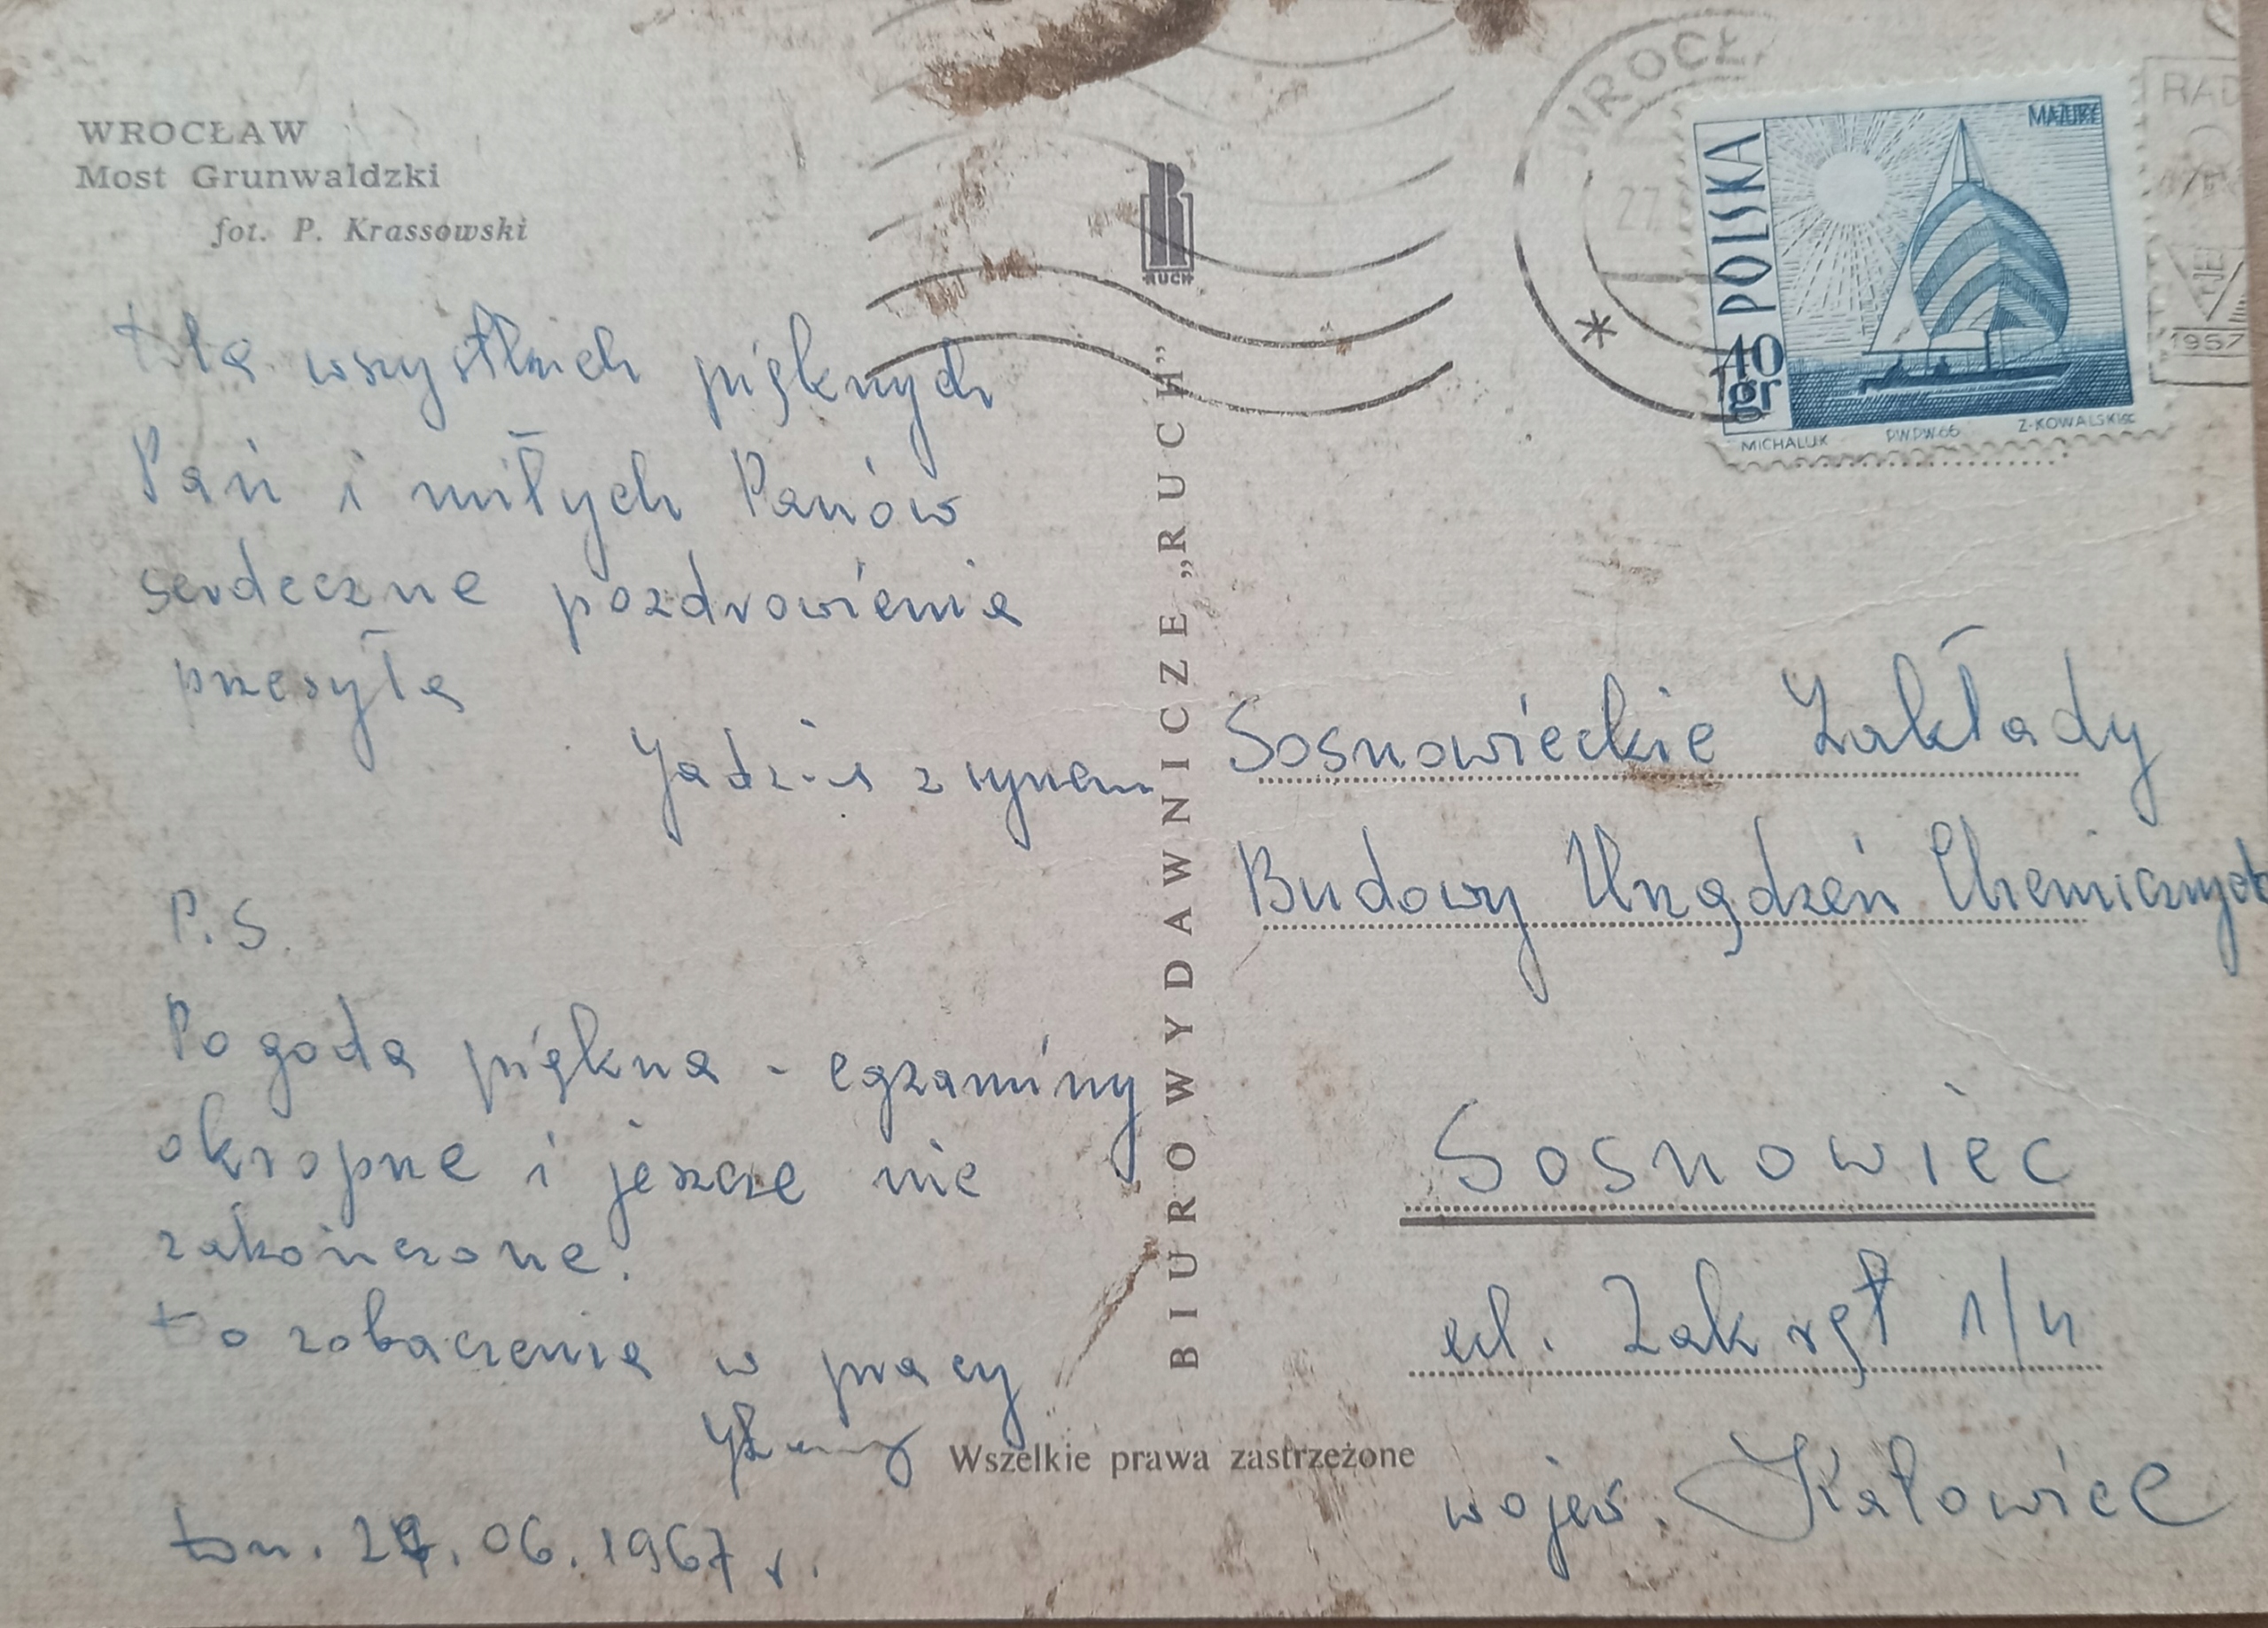 WROCŁAW
Most Grunwaldzki
fot. P. Krassowski
Dla wszystkich pięknych
Pań i miłych Panów
serdeczne pozdrowienia
przesyła
Jadzia z synem
P.S.
Pogoda piękna - egzaminy
okropne i jeszcze nie
zakończone.
Do zobaczenia w pracy
Dn. 27.06.1967 r.
RUCH
BIURO WYDAWNICZE „RUCH”
Wszelkie prawa zastrzeżone
WROCŁ
27
RAD
1957
MAZURY
POLSKA
40 gr
MICHALUK PWPW-66 Z-KOWALSKI sc
Sosnowieckie Zakłady
Budowy Urządzeń Chemicznych
Sosnowiec
ul. Zakręt 1/4
wojew. Katowice